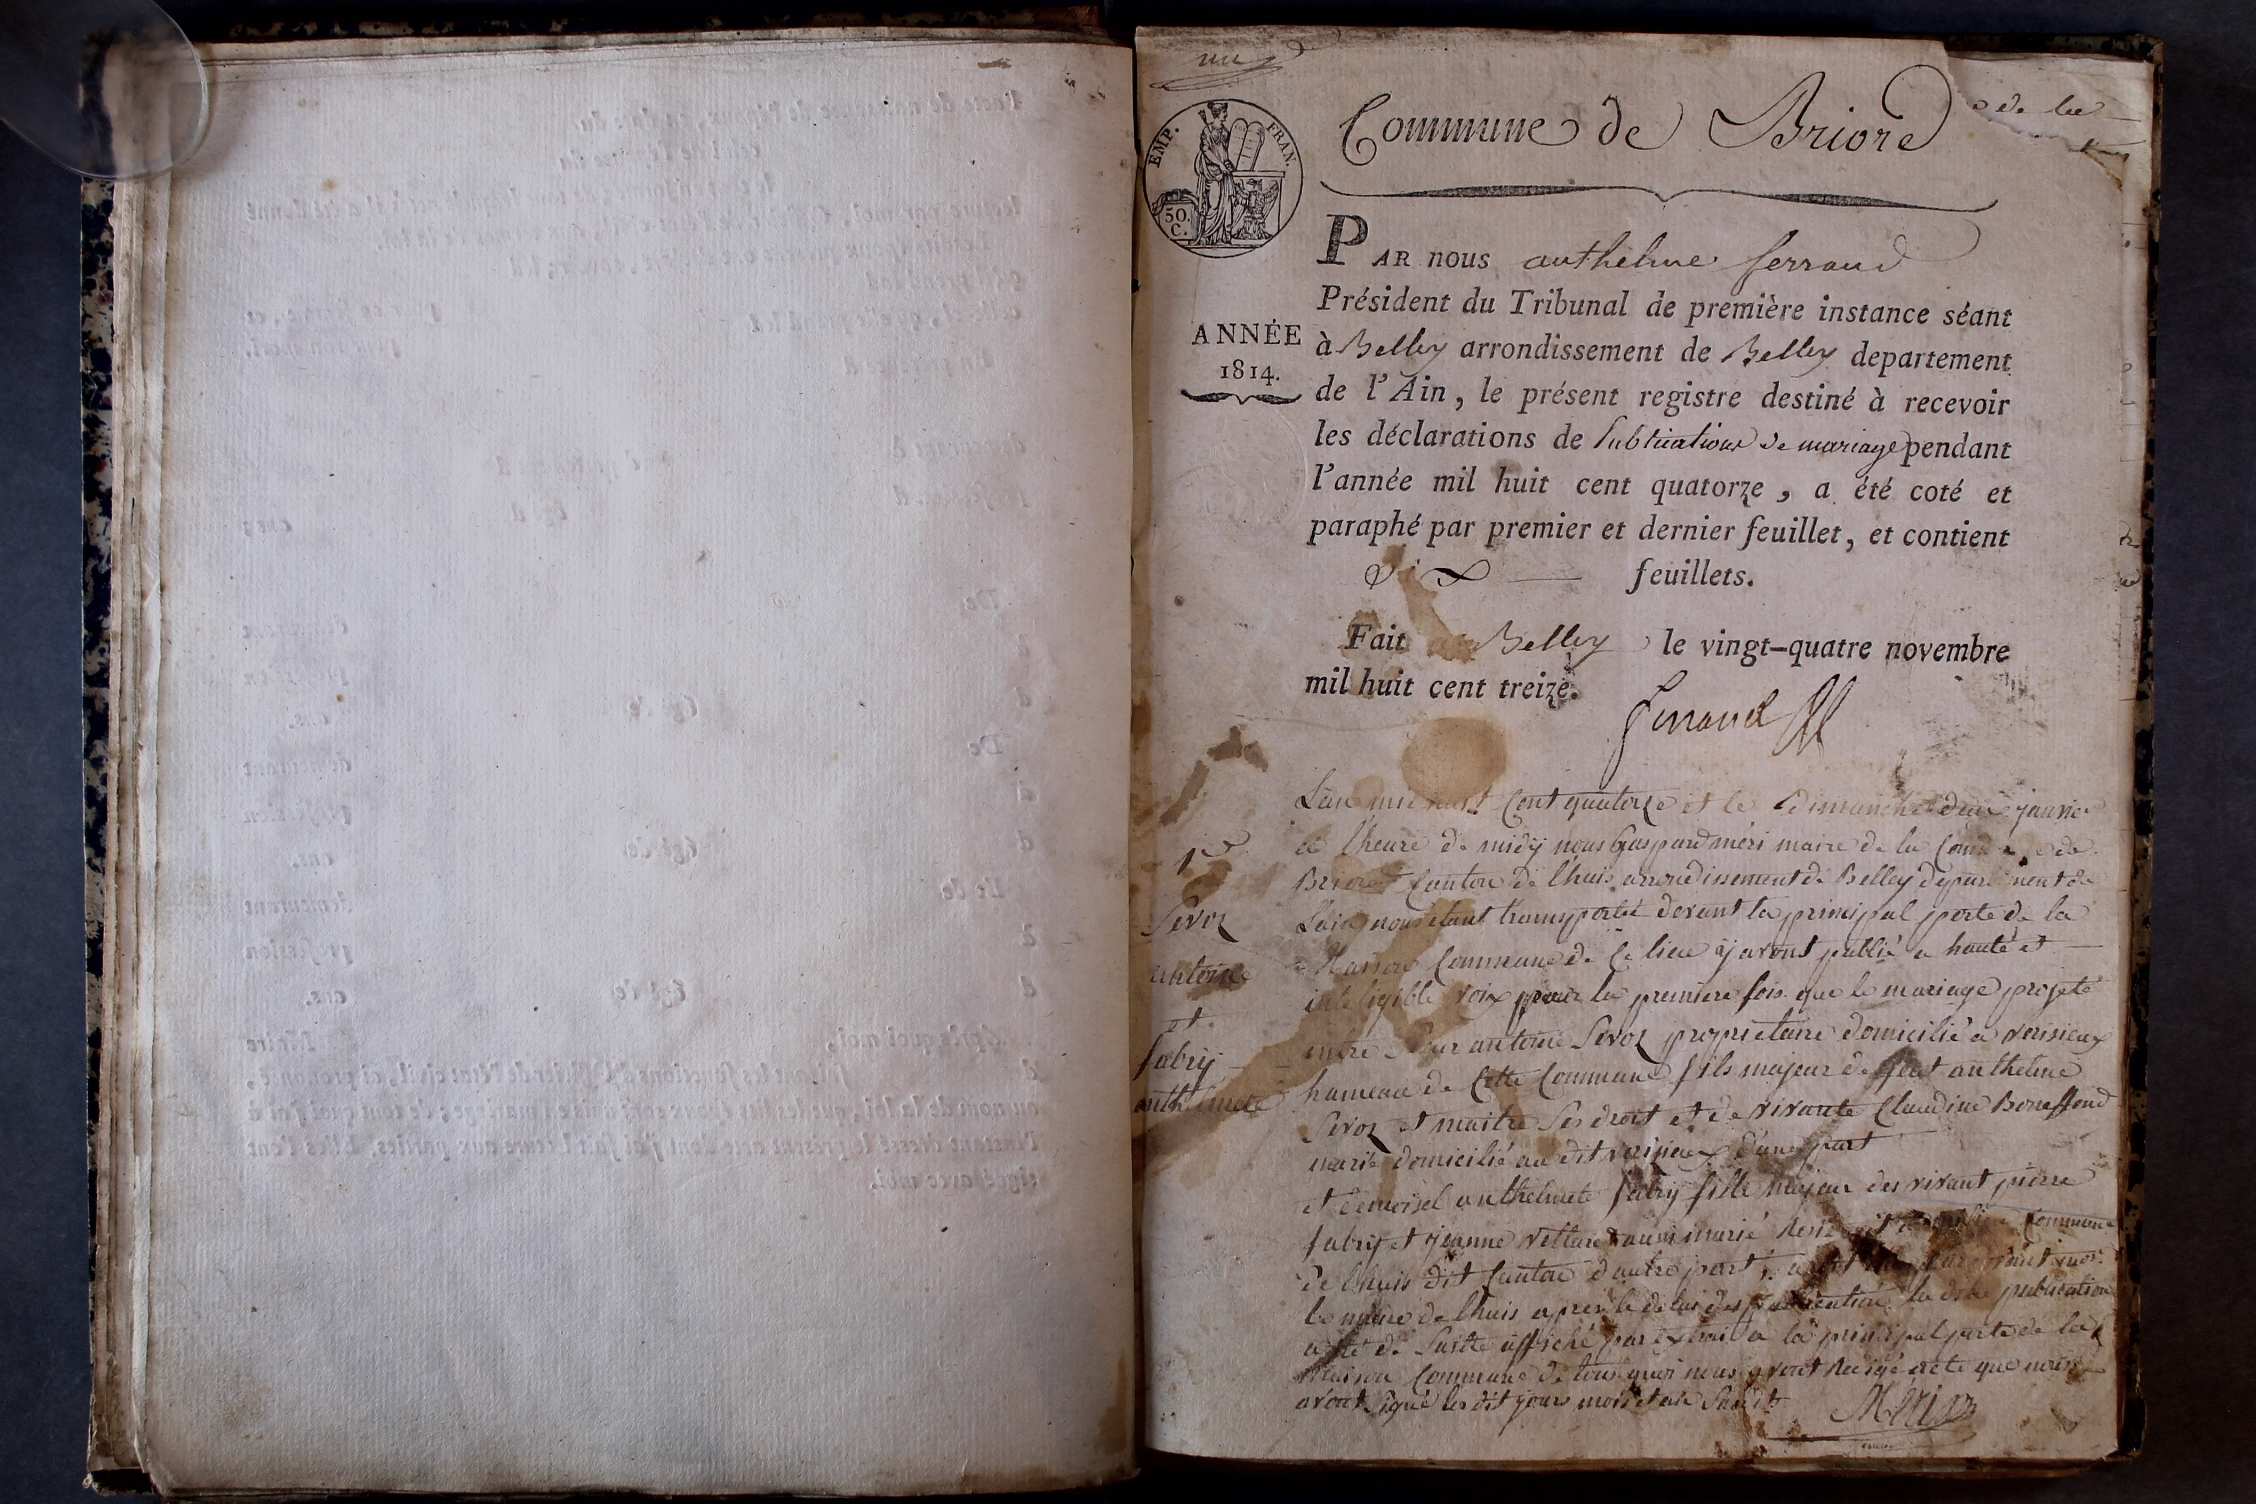 un
EMP. FRAN.
50.
C.
Commune de Briord
de la
PAR nous anthelme ferrand
Président du Tribunal de première instance séant
à Belley arrondissement de Belley departement
de l'Ain, le présent registre destiné à recevoir
les déclarations de Publications de mariage pendant
l'année mil huit cent quatorze, a été coté et
paraphé par premier et dernier feuillet, et contient
six feuillets.
Fait à Belley le vingt-quatre novembre
mil huit cent treize.
ferrand
ANNÉE
1814.
1er
Sevoz
antoine
et
fabry
anthelmete
L'an mil huit Cent quatorze et le dimanche deux janvier
a l'heure de midÿ nous Gaspard méri maire de la Commune de
Briord Canton de lhuis arrondissement de Belley département de
Lain nous etant transportté devant la principal porte de la
Maison Commune de Ce lieu ÿ avont publié a haute et
inteligible voix pour la premiere fois que le mariage projeté
entre Sieur antoine Sevoz propriétaire domicilié a verisieux
hameau de Cette Commune fils majeur de feut anthelme
Sevoz et maitre Ses droit et de vivante Claudine Boneffond
marié domicilié au dit verisieux d'une part
et demoisel anthelmete fabry fille majeur des vivant pierre
fabry et jeanne vettard aussi marié Commune
de lhuis dit Canton d'autre part
le maire de lhuis apres le delai des publication la dite publication
a été de Suitte affiché par Extrai a la principal porte de la
Maison Commune de tous quoi nous avont redigé acte que nous
avont Signé les dit jours mois et an Susdit
Méri